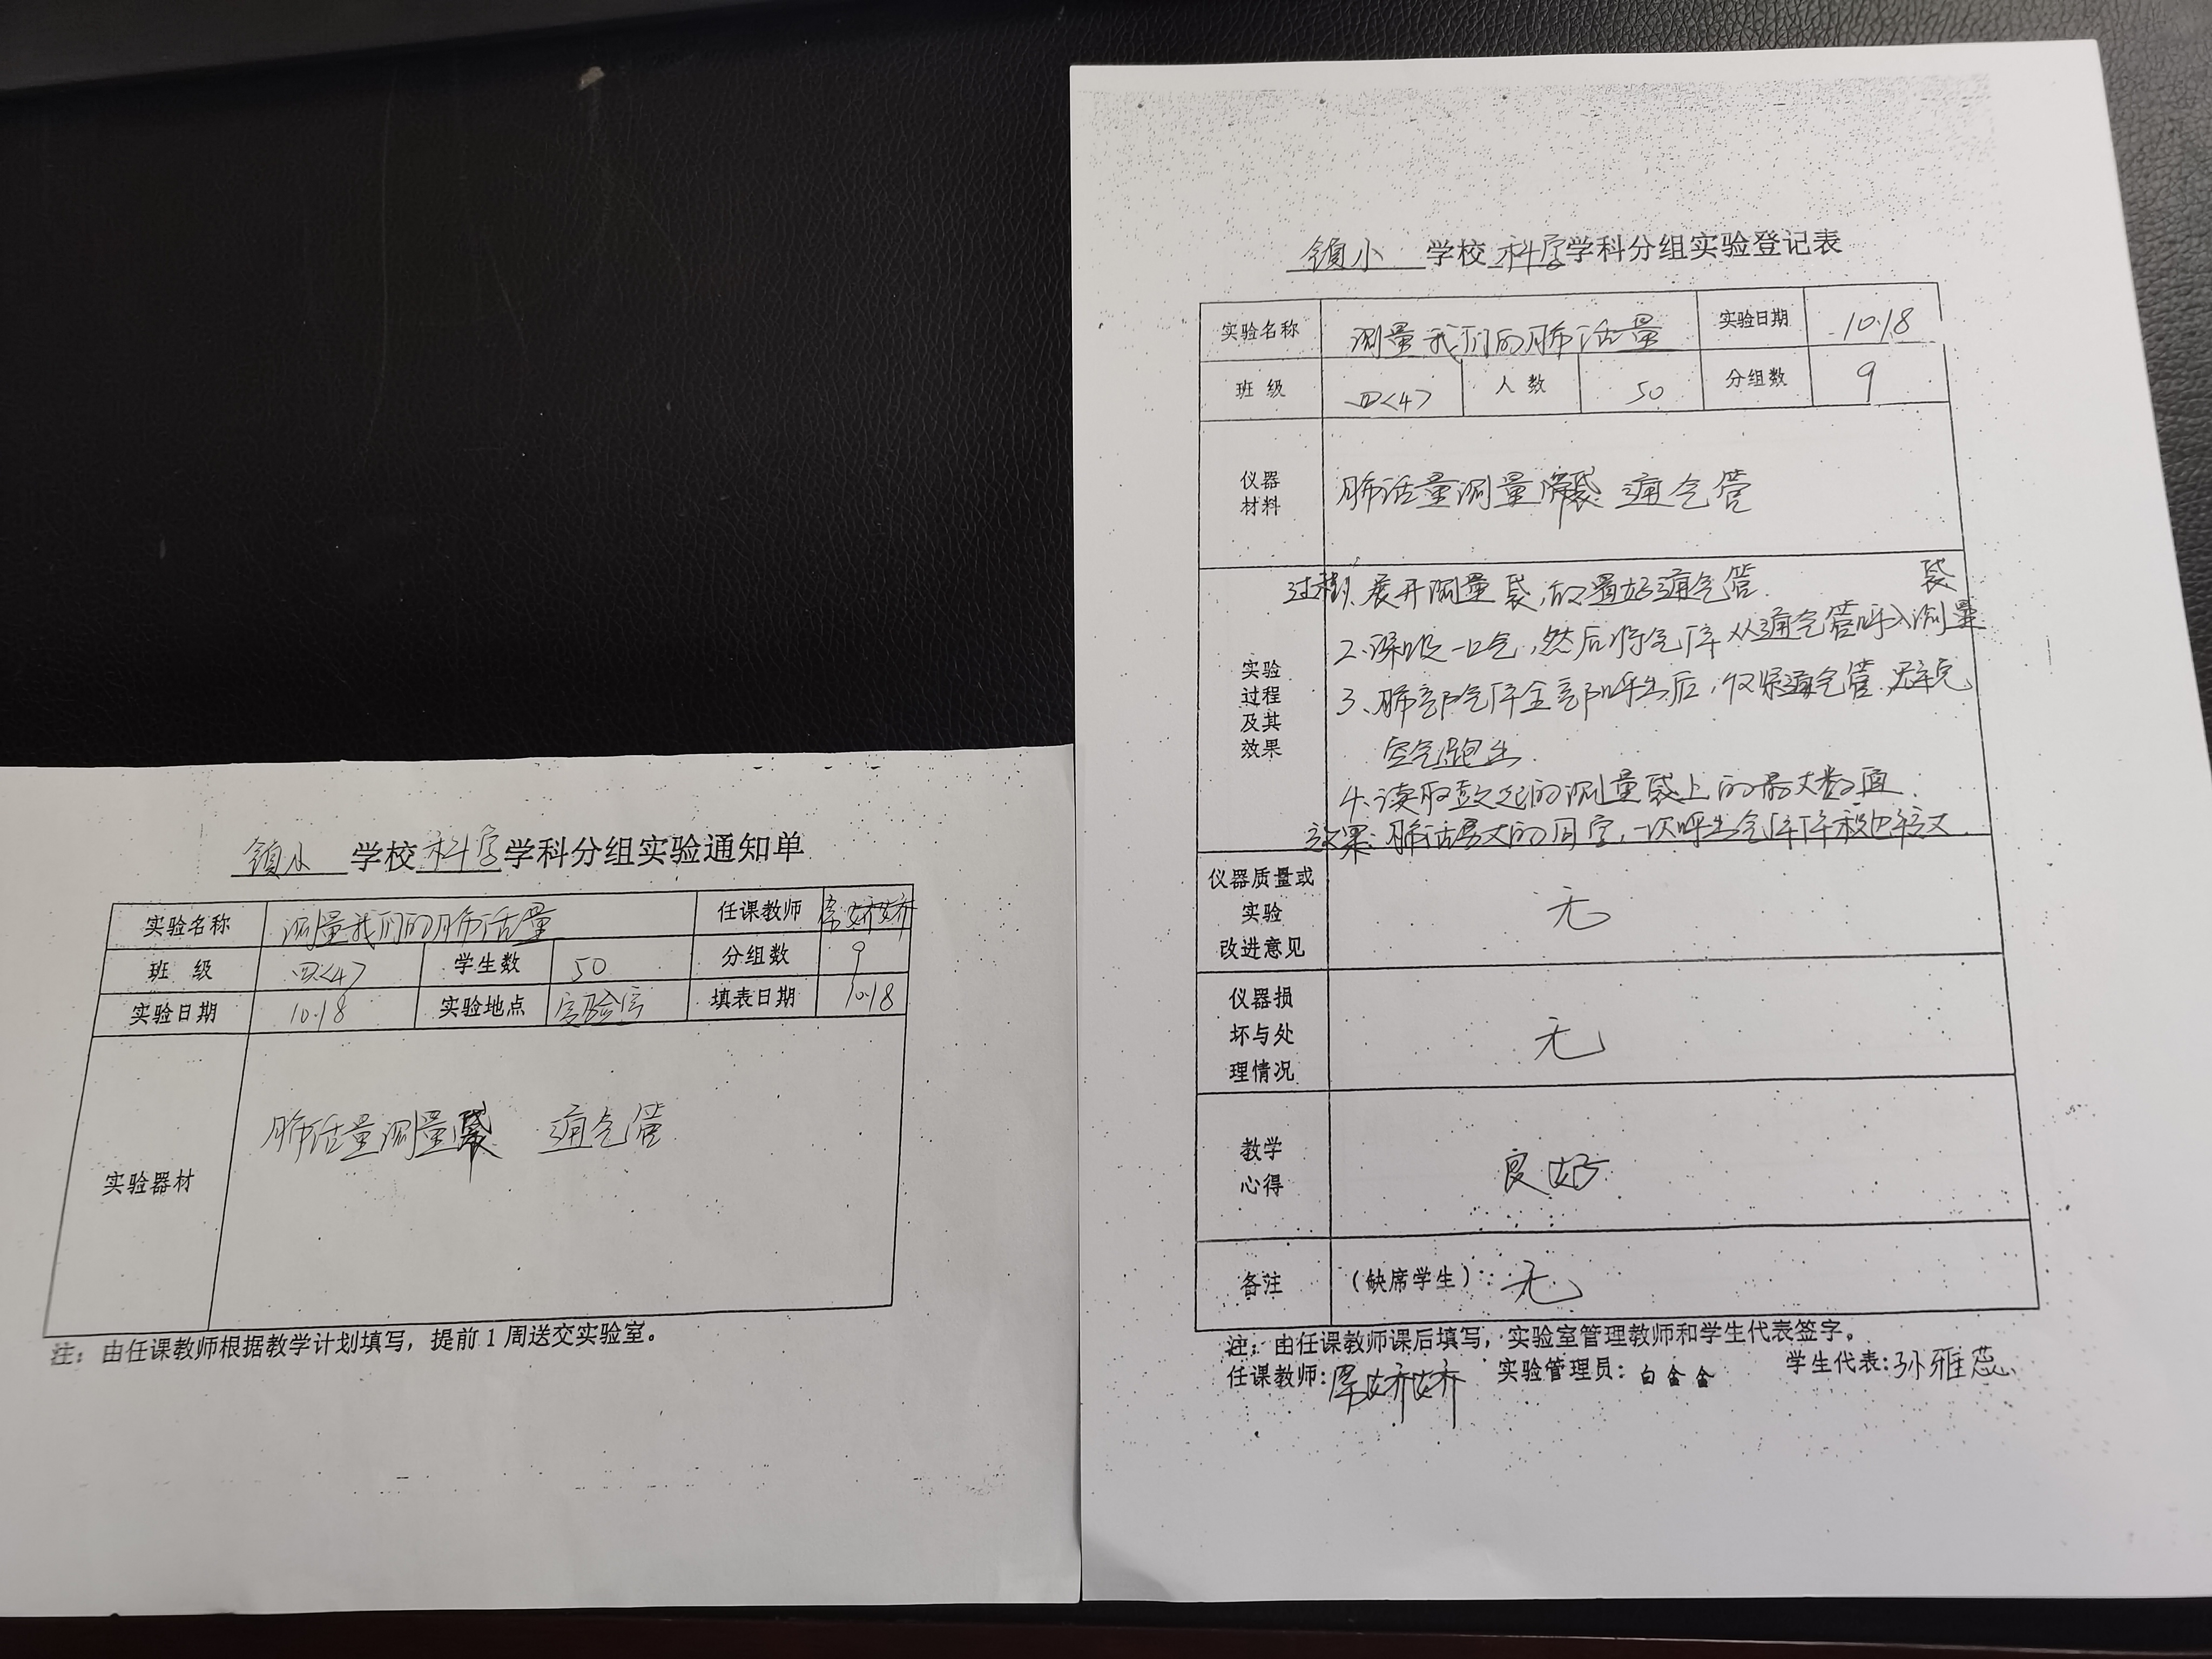 镇小 学校 科学 学科分组实验通知单
实验名称 测量我们的肺活量 任课教师 娇娇
班 级 四<4> 学生数 50 分组数 9
实验日期 10.18 实验地点 实验室 填表日期 10.18
实验器材 肺活量测量袋 通气管
注：由任课教师根据教学计划填写，提前1周送交实验室。
镇小 学校 科学 学科分组实验登记表
实验名称 测量我们的肺活量 实验日期 10.18
班 级 四<4> 人 数 50 分组数 9
仪器材料 肺活量测量袋 通气管
实验过程及其效果
过程1、展开测量袋，放置好通气管.
2、深吸一口气，然后将气体从通气管呼入测量袋
3、肺部气体全部呼出后，收紧通气管.避免
空气跑出.
4、读取鼓起的测量袋上的最大数值.
效果：肺活量大的同学，一次呼出气体体积也较大.
仪器质量或实验改进意见 无
仪器损坏与处理情况 无
教学心得 良好
备注 （缺席学生）：无
注：由任课教师课后填写，实验室管理教师和学生代表签字。
任课教师: 娇娇 实验管理员：白金金 学生代表:孙雅蕊